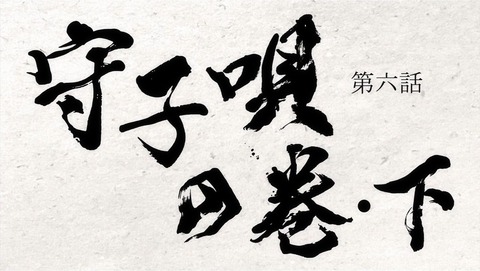 守子唄
の巻・下
第六話